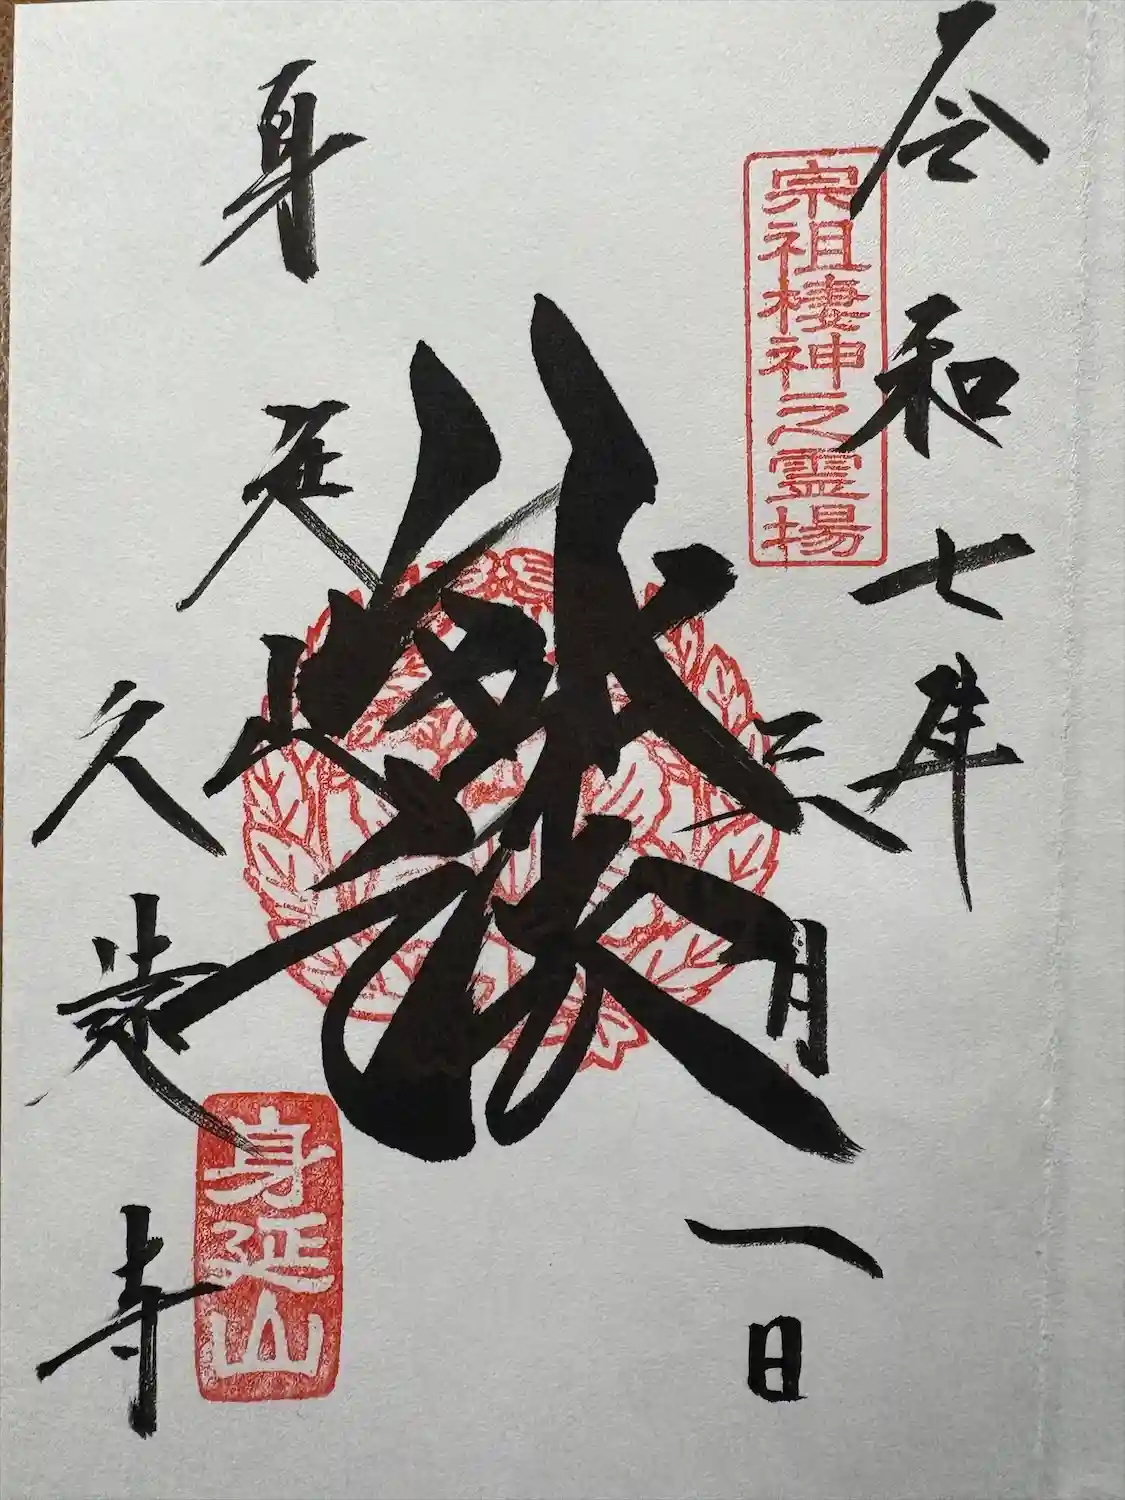 令和七年
六月一日
宗祖棲神之霊場
身延山
久遠寺
身延山